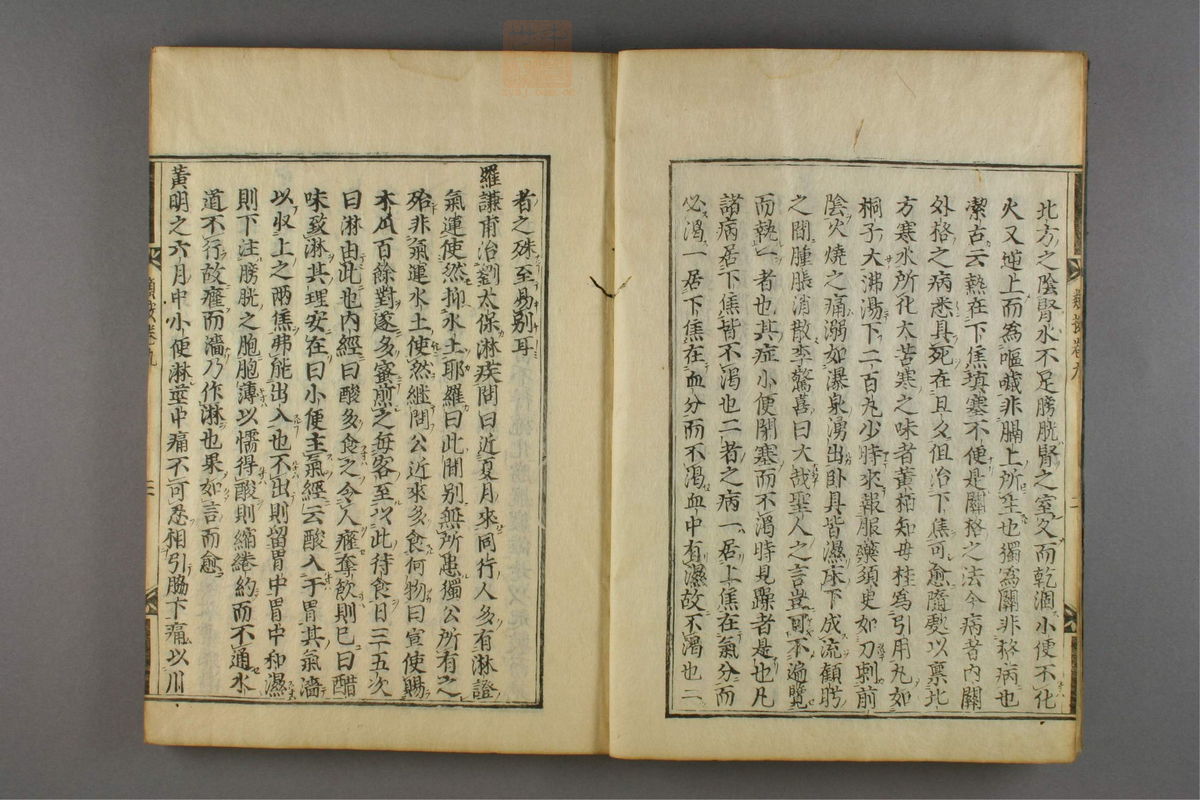 北方之陰腎水不足膀胱腎之室久而乾涸小便不化
火又逆上而為嘔噦非膈上所生也獨為關非格病也
潔古云熱在下焦塡塞不便是關格之法今病者內關
外格之病悉具死在旦夕但治下焦可愈隨處以稟北
方寒水所化大苦寒之味者黃栢知母桂為引用丸如
桐子大沸湯下二百丸少時來報服藥須臾如刀刺前
陰火燒之痛溺如瀑泉湧出臥具皆濕床下成流顧盻
之間腫脹消散李驚喜曰大哉聖人之言豈可不遍覽
而執一者也其症小便閉塞而不渴時見躁者是也凡
諸病居下焦皆不渴也二者之病一居上焦在氣分而
必渴一居下焦在血分而不渴血中有濕故不渴也二
類按卷九
者之殊至易別耳
羅謙甫治劉太保淋疾問曰近夏月來同行人多有淋證
氣運使然抑水土耶羅曰此間別無所患獨公所有之
殆非氣運水土使然繼問公近來多食何物曰宣使賜
木瓜百餘對遂多蜜煎之每客至以此待食日三五次
曰淋由此也內經曰酸多食之令人癃奪飲則已曰醋
味致淋其理安在曰小便主氣經云酸入于胃其氣濇
以收上之兩焦弗能出入也不出則留胃中胃中和濕
則下注膀胱之胞胞薄以懦得酸則縮綣約而不通水
道不行故癃而濇乃作淋也果如言而愈
黃明之六月中小便淋莖中痛不可忍相引脇下痛以川